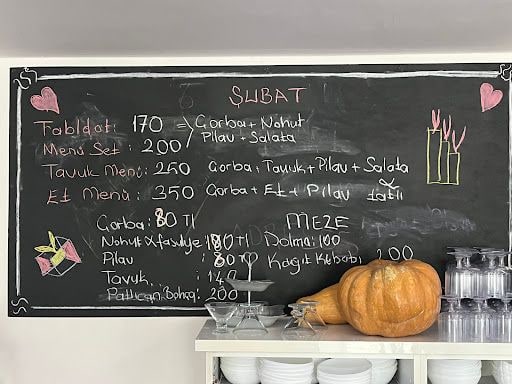 ŞUBAT
Tabldot: 170 => Çorba + Nohut
Pilav + Salata
Menü Set: 200
Tavuk Menü: 250 Çorba + Tavuk + Pilav + Salata
Et Menü: 350 Çorba + Et + Pilav tatlı
Çorba: 80 Tl
Nohut x fasulye 180 Tl
Pilav : 80 Tl
Tavuk : 140
Patlıcan : 200
MEZE
Dolma: 100
Kağıt Kebabı 200